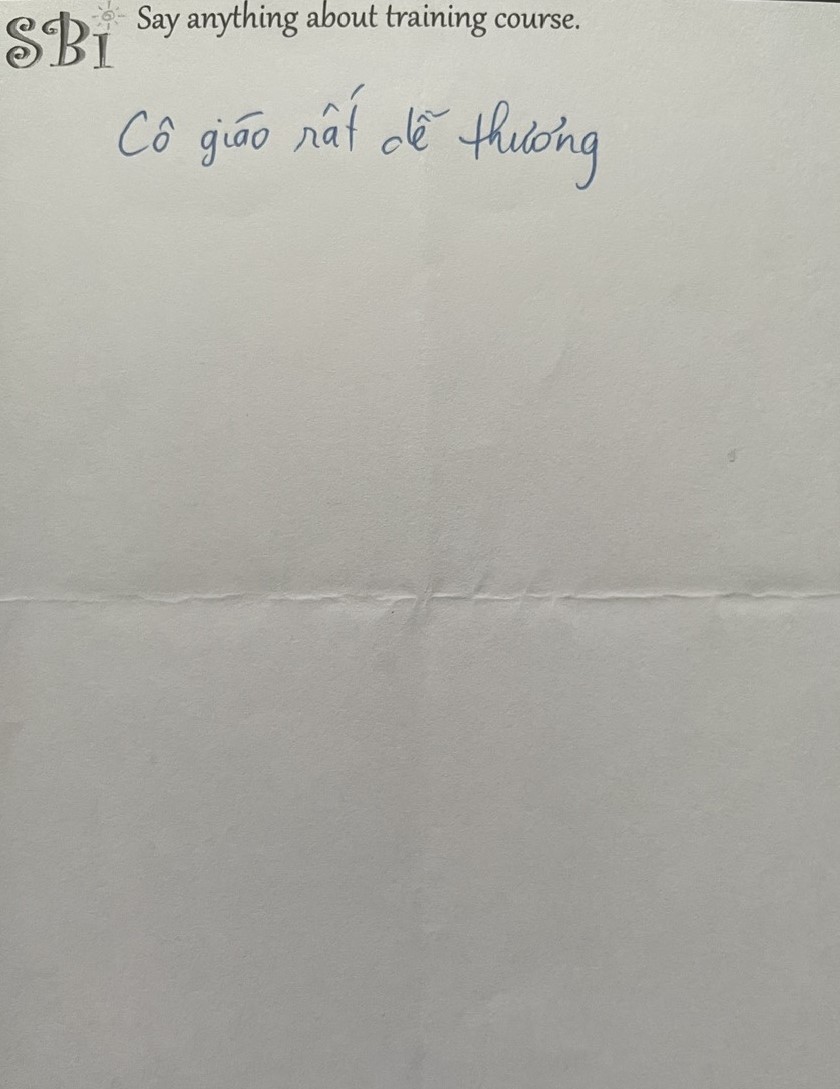 SBI Say anything about training course.
Cô giáo rất dễ thương